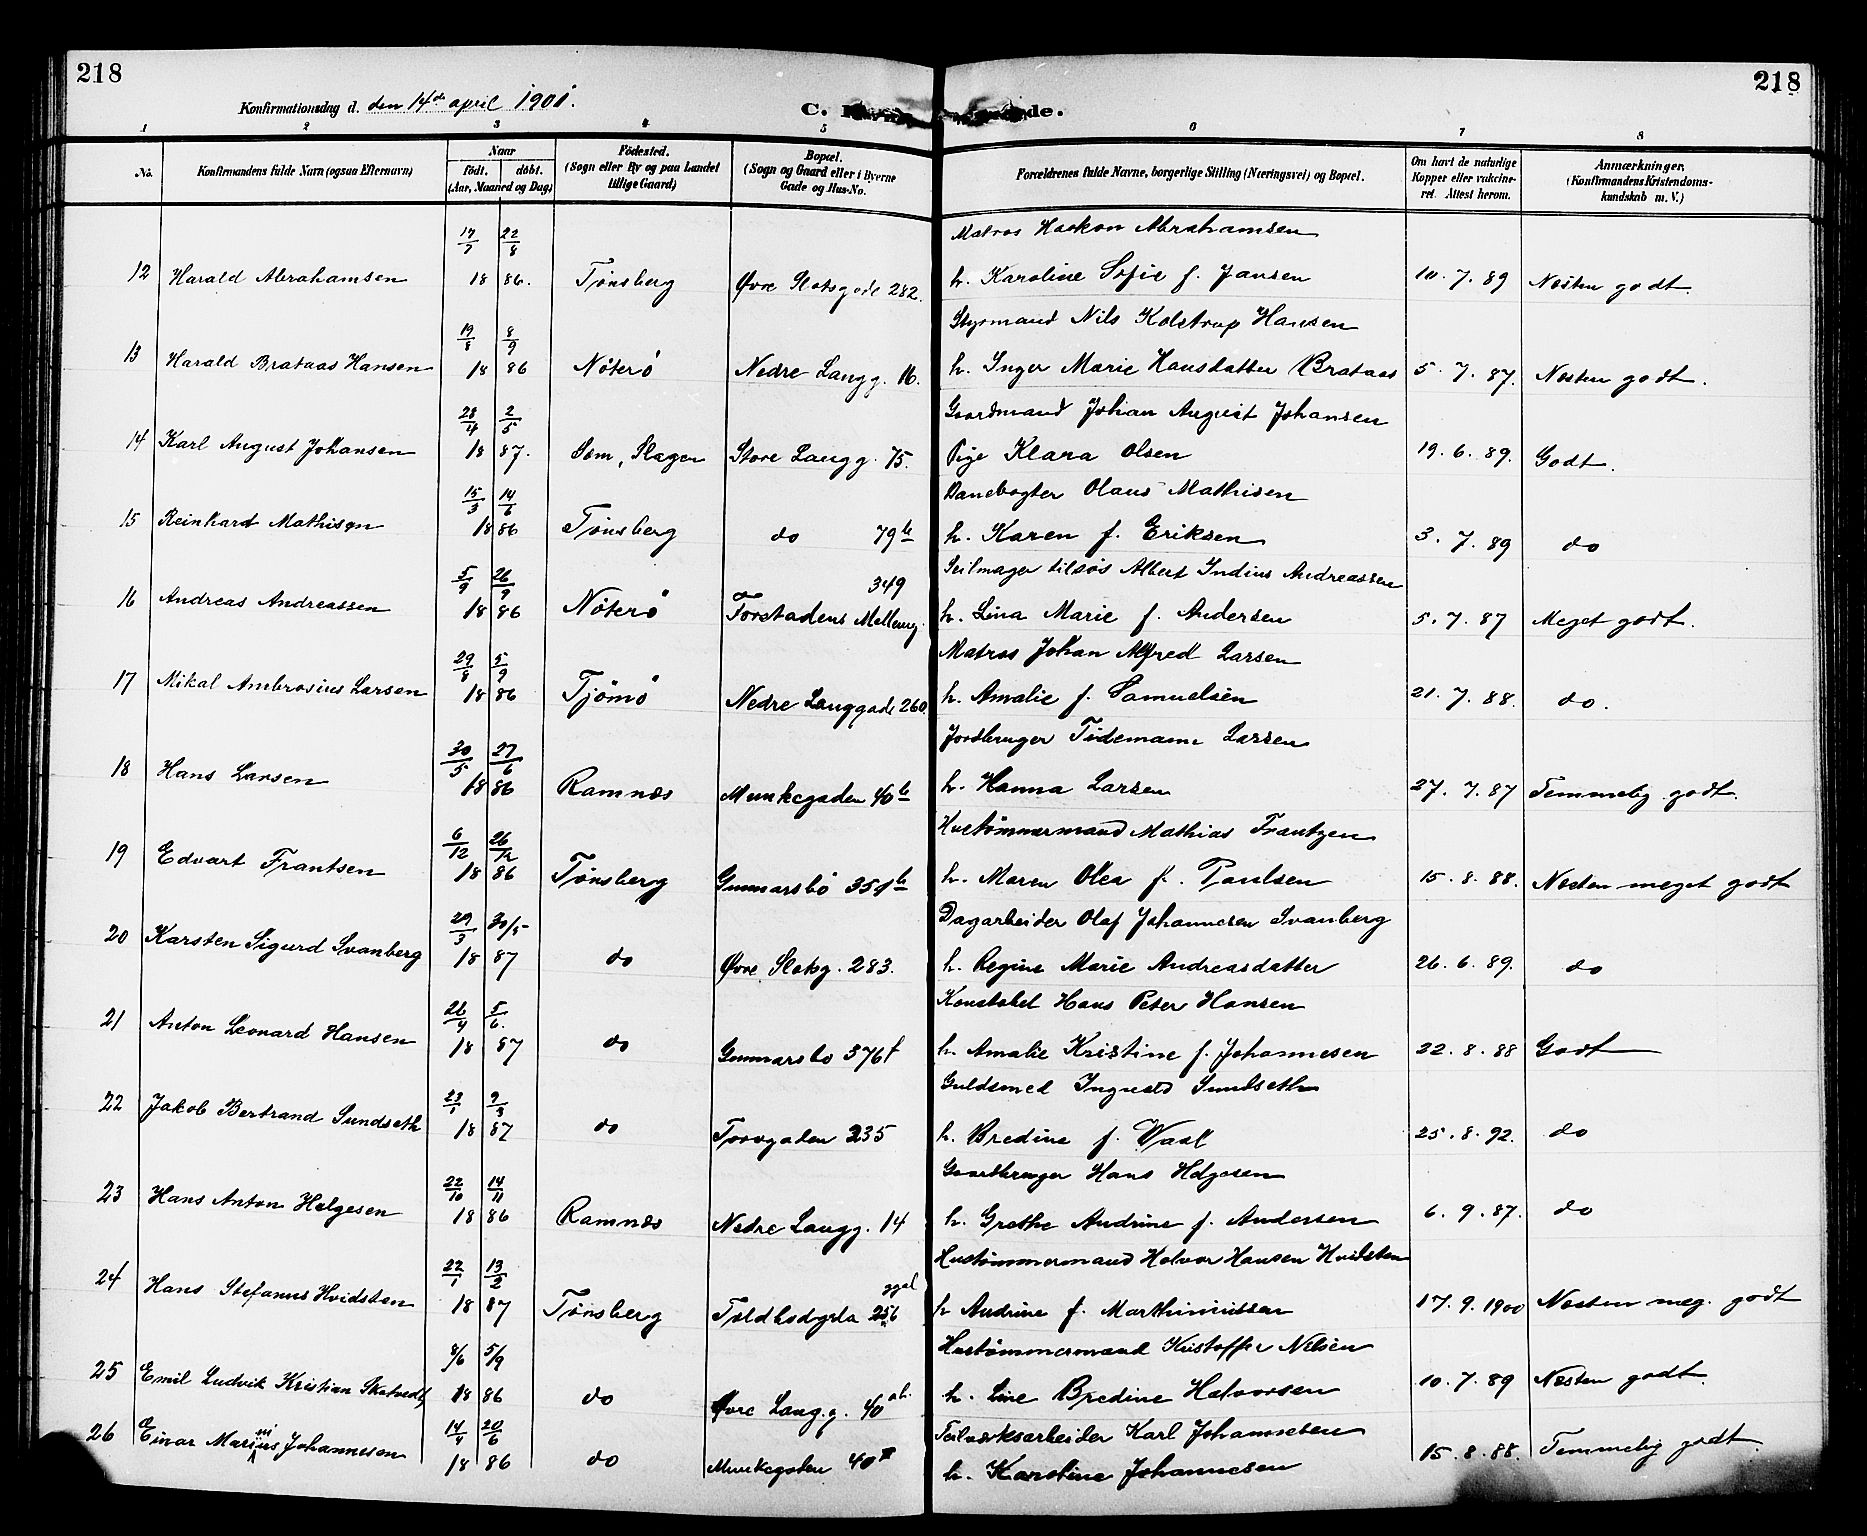 218
218
Konfirmationsdag d. den 14de april 1901.
C. de.
1 2 3 4 5 6 7 8
No.
Konfirmandens fulde Navn (ogsaa Efternavn)
Naar
födt. döbt.
(Aar, Maaned og Dag)
Födested.
(Sogn eller By og paa Landet
tillige Gaard)
Bopæl.
(Sogn og Gaard eller i Byerne
Gade og Hus-No.
Forældrenes fulde Navne, borgerlige Stilling (Næringsvei) og Bopæl.
Om havt de naturlige
Kopper eller vakcine-
ret. Attest herom.
Anmærkninger.
(Konfirmandens Kristendoms-
kundskab m. V.)
17/7 22/8 Matros Haakon Abrahamsen
12 Harald Abrahamsen 18 86. Tønsberg Øvre Slotsgade 282. h. Karoline Sofie f. Jansen 10. 7. 89 Næsten godt.
19/8 8/9 Styrmand Nils Kolstrup Hansen
13 Harald Brataas Hansen 18 86 Nøterø Nedre Langg. 16. h. Inger Marie Hansdatter Brataas 5. 7. 87. Næsten godt.
28/4 2/5 Gaardmand Johan August Johansen
14 Karl August Johansen 18 87. Sem, Slagen Store Langg. 75. Pige Klara Olsen 19. 6. 89. Godt.
15/3 14/6 Banevogter Olaus Mathisen
15 Reinhard Mathisen 18 86 Tønsberg do 79b h. Karen f. Eriksen 3. 7. 89 do
5/9 26/9 349 Seilmager tilsøs Albert Indius Andreassen
16 Andreas Andreassen 18 86 Nøterø Forstadens Mellemg. h. Lina Marie f. Andersen 5. 7. 87 Meget godt.
29/8 5/9 Matros Johan Alfred Larsen
17 Mikal Ambrosius Larsen 18 86 Tjømø Nedre Langgade 260. h. Amalie f. Samuelsen 21. 7. 88. do.
30/5 27/6 Jordbruger Tidemann Larsen
18 Hans Larsen 18 86 Ramnæs Munkegaden 40b h. Hanna Larsen 27. 7. 87 Temmelig godt.
6/12 26/12 Hustømmermand Mathias Frantzen
19 Edvart Frantsen 18 86 Tønsberg Gunnarsbø 351b h. Maren Olea f. Paulsen 15. 8. 88. Næsten meget godt
29/3 30/5 Dagarbeider Olaf Johannesen Svanberg
20 Karsten Sigurd Svanberg 18 87 do Øvre Slotsg. 283. h. Regine Marie Andreasdatter 26. 6. 89. do
26/4 5/6. Konstabel Hans Peter Hansen
21 Anton Leonard Hansen 18 87 do Gunnarsbo 376f h. Amalie Kristine f. Johannesen 22. 8. 88 Godt
23/1 9/3 Guldsmed Ingvald Sundseth
22 Jakob Bertrand Sundseth 18 87 do Torvgaden 235 h. Bredine f. Vaal 25. 8. 92. do
22/10 14/11 Gaardbruger Hans Helgesen
23 Hans Anton Helgesen 18 86 Ramnæs Nedre Langg. 14 h. Grethe Andrine f. Andersen 6. 9. 87. do
22/1 13/2 Hustømmermand Halvor Hansen Hvidsten
24 Hans Stefanus Hvidsten 18 87 Tønsberg 256 h Andrine f. Marthiniussen 17. 9. 1900 Næsten meg. godt
8/6 5/9 Hustømmermand Kristoffer Nilsen
25 Emil Ludvik Kristian Skatvedt 18 86 do Øvre Lang.g. 40 h. Line Bredine Halvorsen 10. 7. 89 Næsten godt.
14/4 20/6 Teilværksarbeider Karl Johannesen
26 Einar Marinius Johannesen 18 86 do Munkegaden 40 h. Karoline Johannesen 15. 8. 88. Temmelig godt.